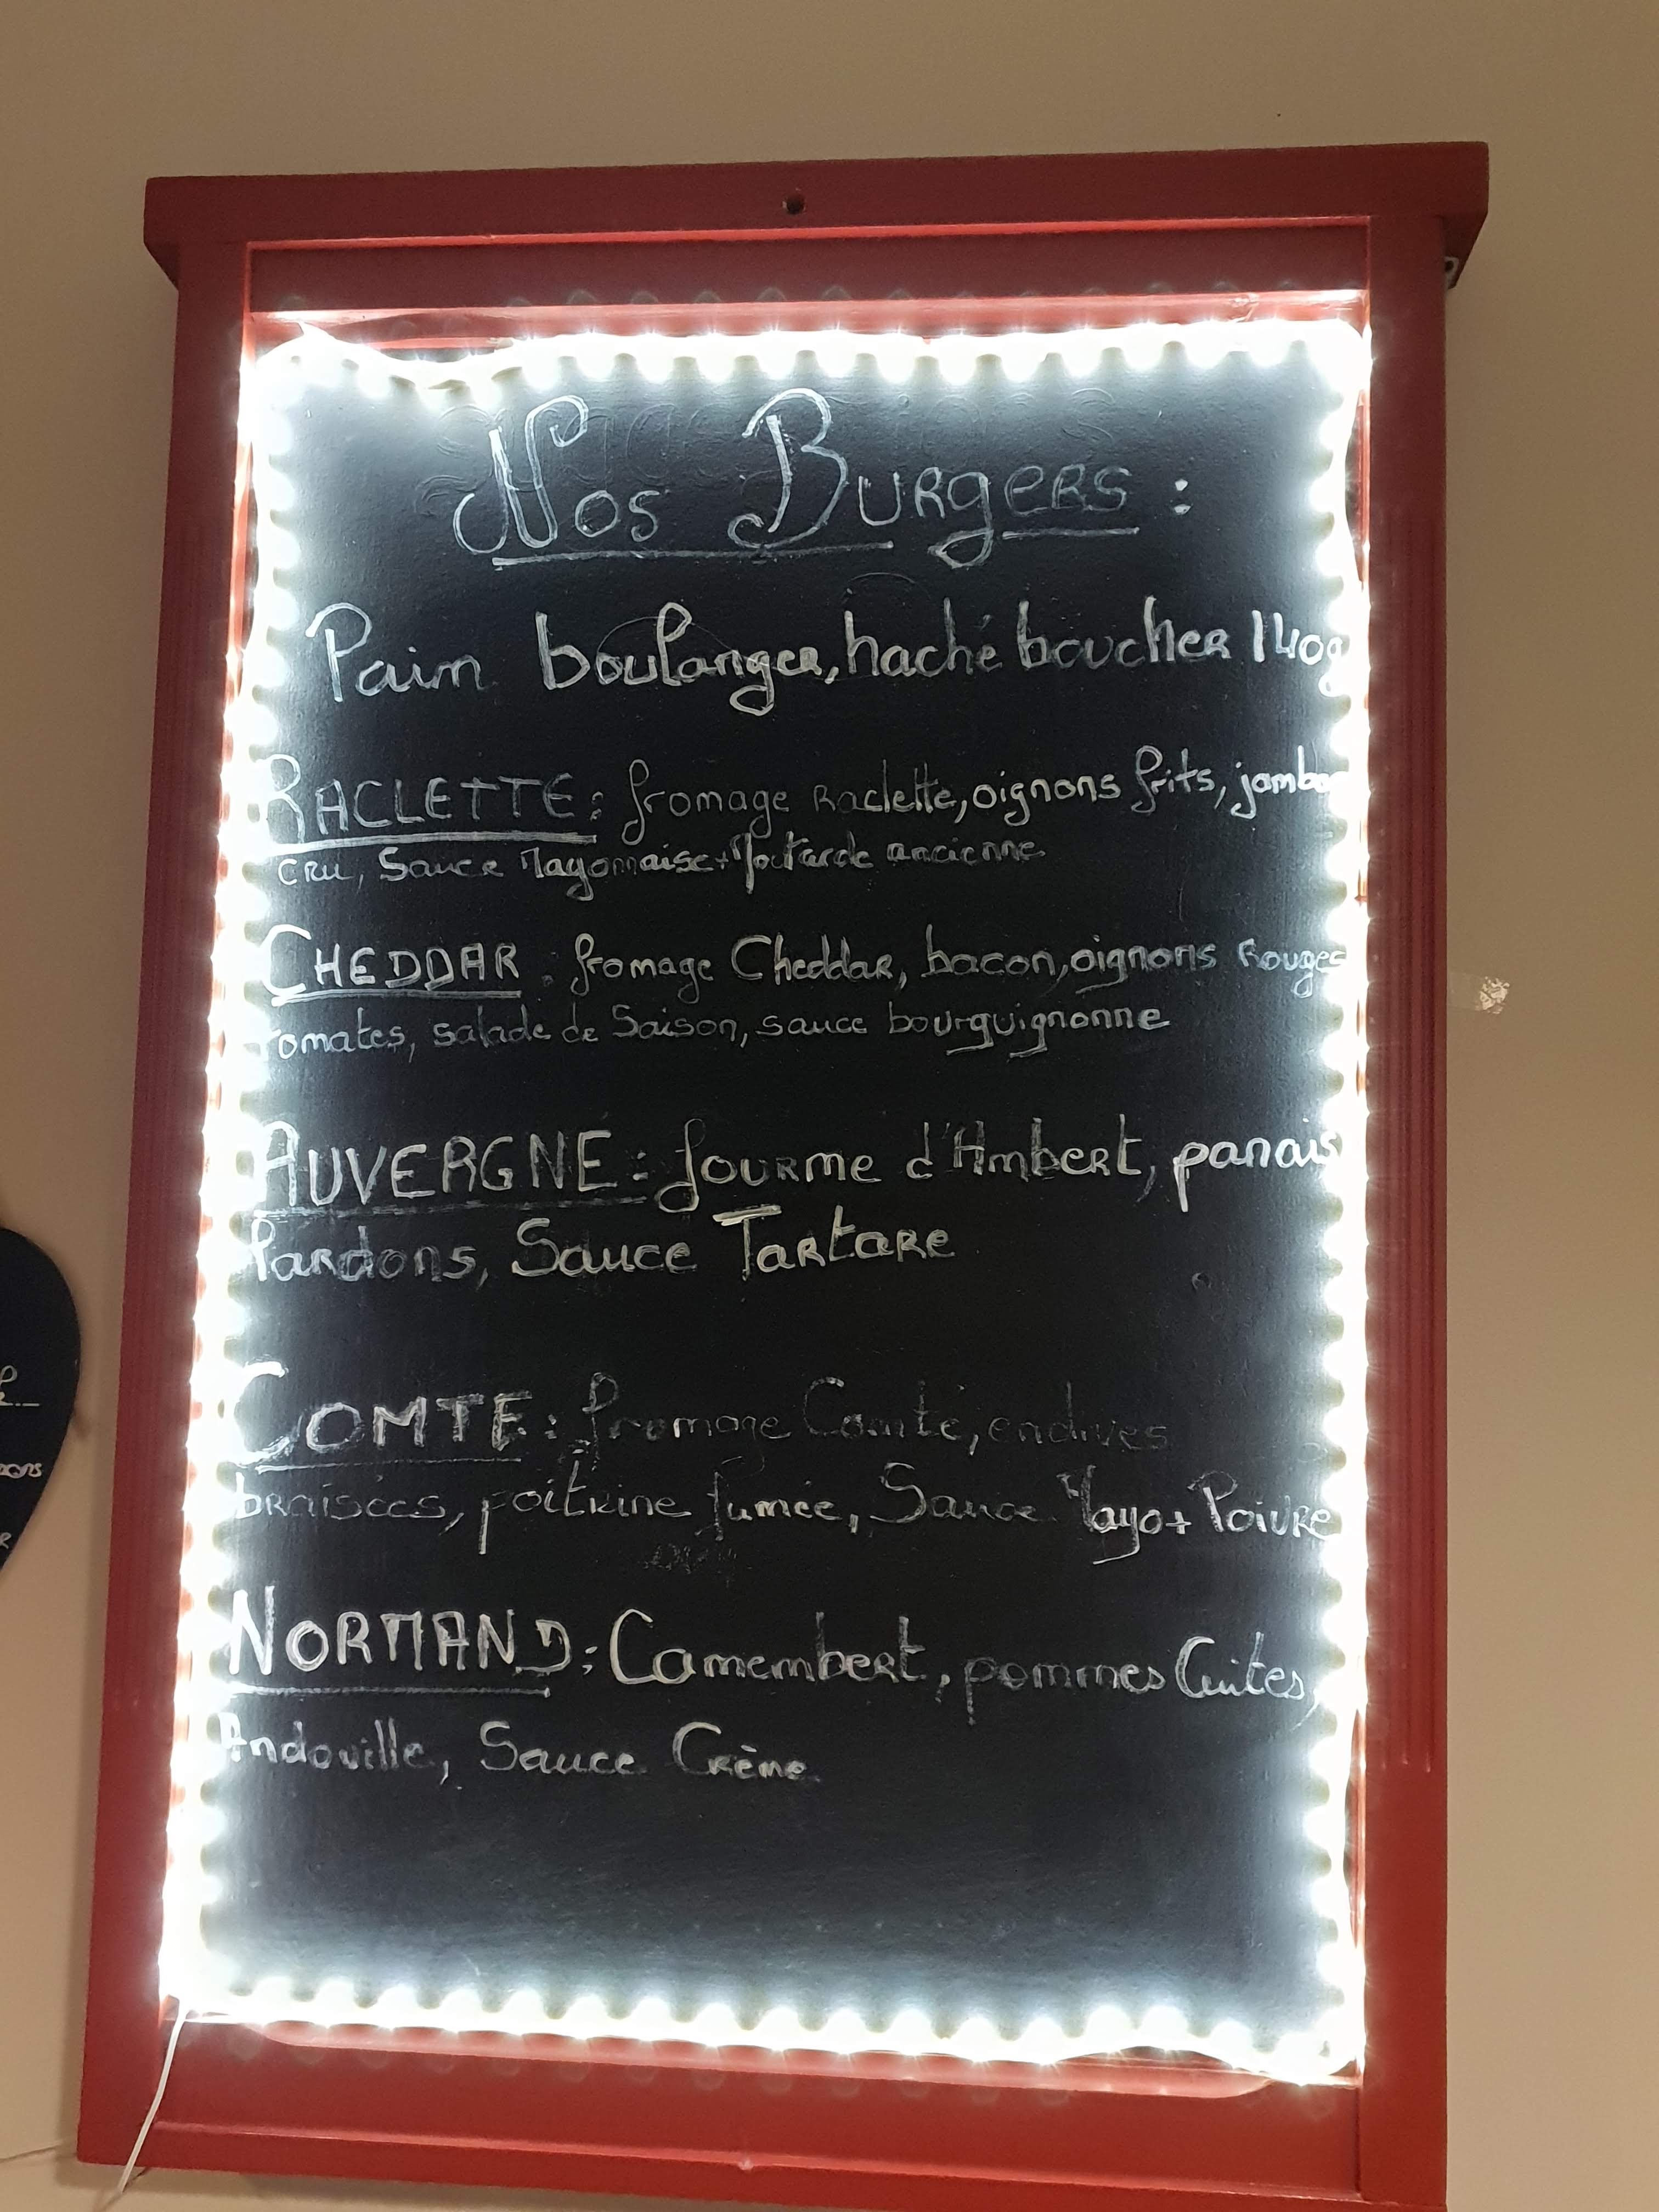 Nos Burgers :
Pain boulanger, haché boucher 140g
RACLETTE : fromage Raclette, oignons frits, jambon
cru, Sauce Mayonnaise + Moutarde ancienne
CHEDDAR : fromage Cheddar, bacon, oignons Rouges
Tomates, salade de Saison, sauce bourguignonne
AUVERGNE : fourme d'Ambert, panais
Lardons, Sauce Tartare
COMTE : fromage Comté, endives
braisées, poitrine fumée, Sauce Mayo + Poivre
NORMAND : Camembert, pommes Cuites,
Andouille, Sauce Crème